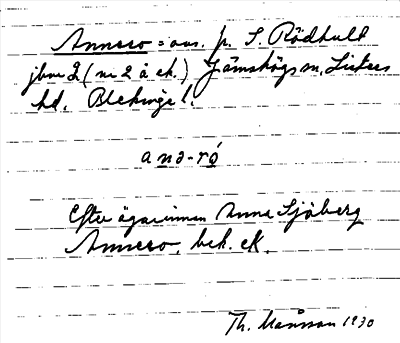 Annero = avs. p. S. Rödhult
jbnr 2 (nr 2 å ek.) Jämshögs sn, Listers
hd. Blekinge l.
anə-ró
Efter ägarinnan Anna Sjöberg
Annero, bek. ek.
Th. Månsson 1930